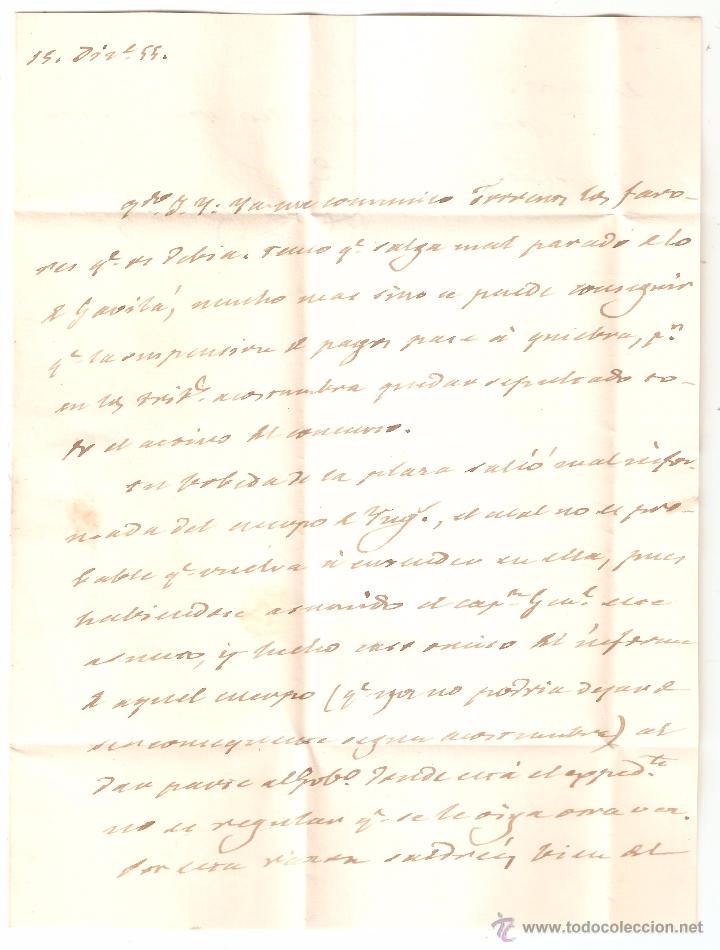 15. Dic.e 55.
Ya me comunicó Torrens los favo-
res q.e os debia. Temo q.e salga mal parado de lo
de Gavilá, mucho mas sino se puede conseguir
q.e la suspension de pagos pase á quiebra, p.s
en los trib.s acostumbra quedar sepultado to-
do el activo del concurso.
La de la plaza salió mal infor-
mada del cuerpo de Ing.s, el cual no es pro-
bable q.e vuelva á entender en ella, pues
habiendose asumido el cap.n Gen.l ese
asunto, y hecho caso omiso del informe
de aquel cuerpo (q.e ya no podria dejar de
ser consequente segun acostumbra) al
dar parte al Gob.o donde está el exped.te
no es regular q.e se le oiga otra vez.
Por esta razon saldreis bien del
www.todocoleccion.net